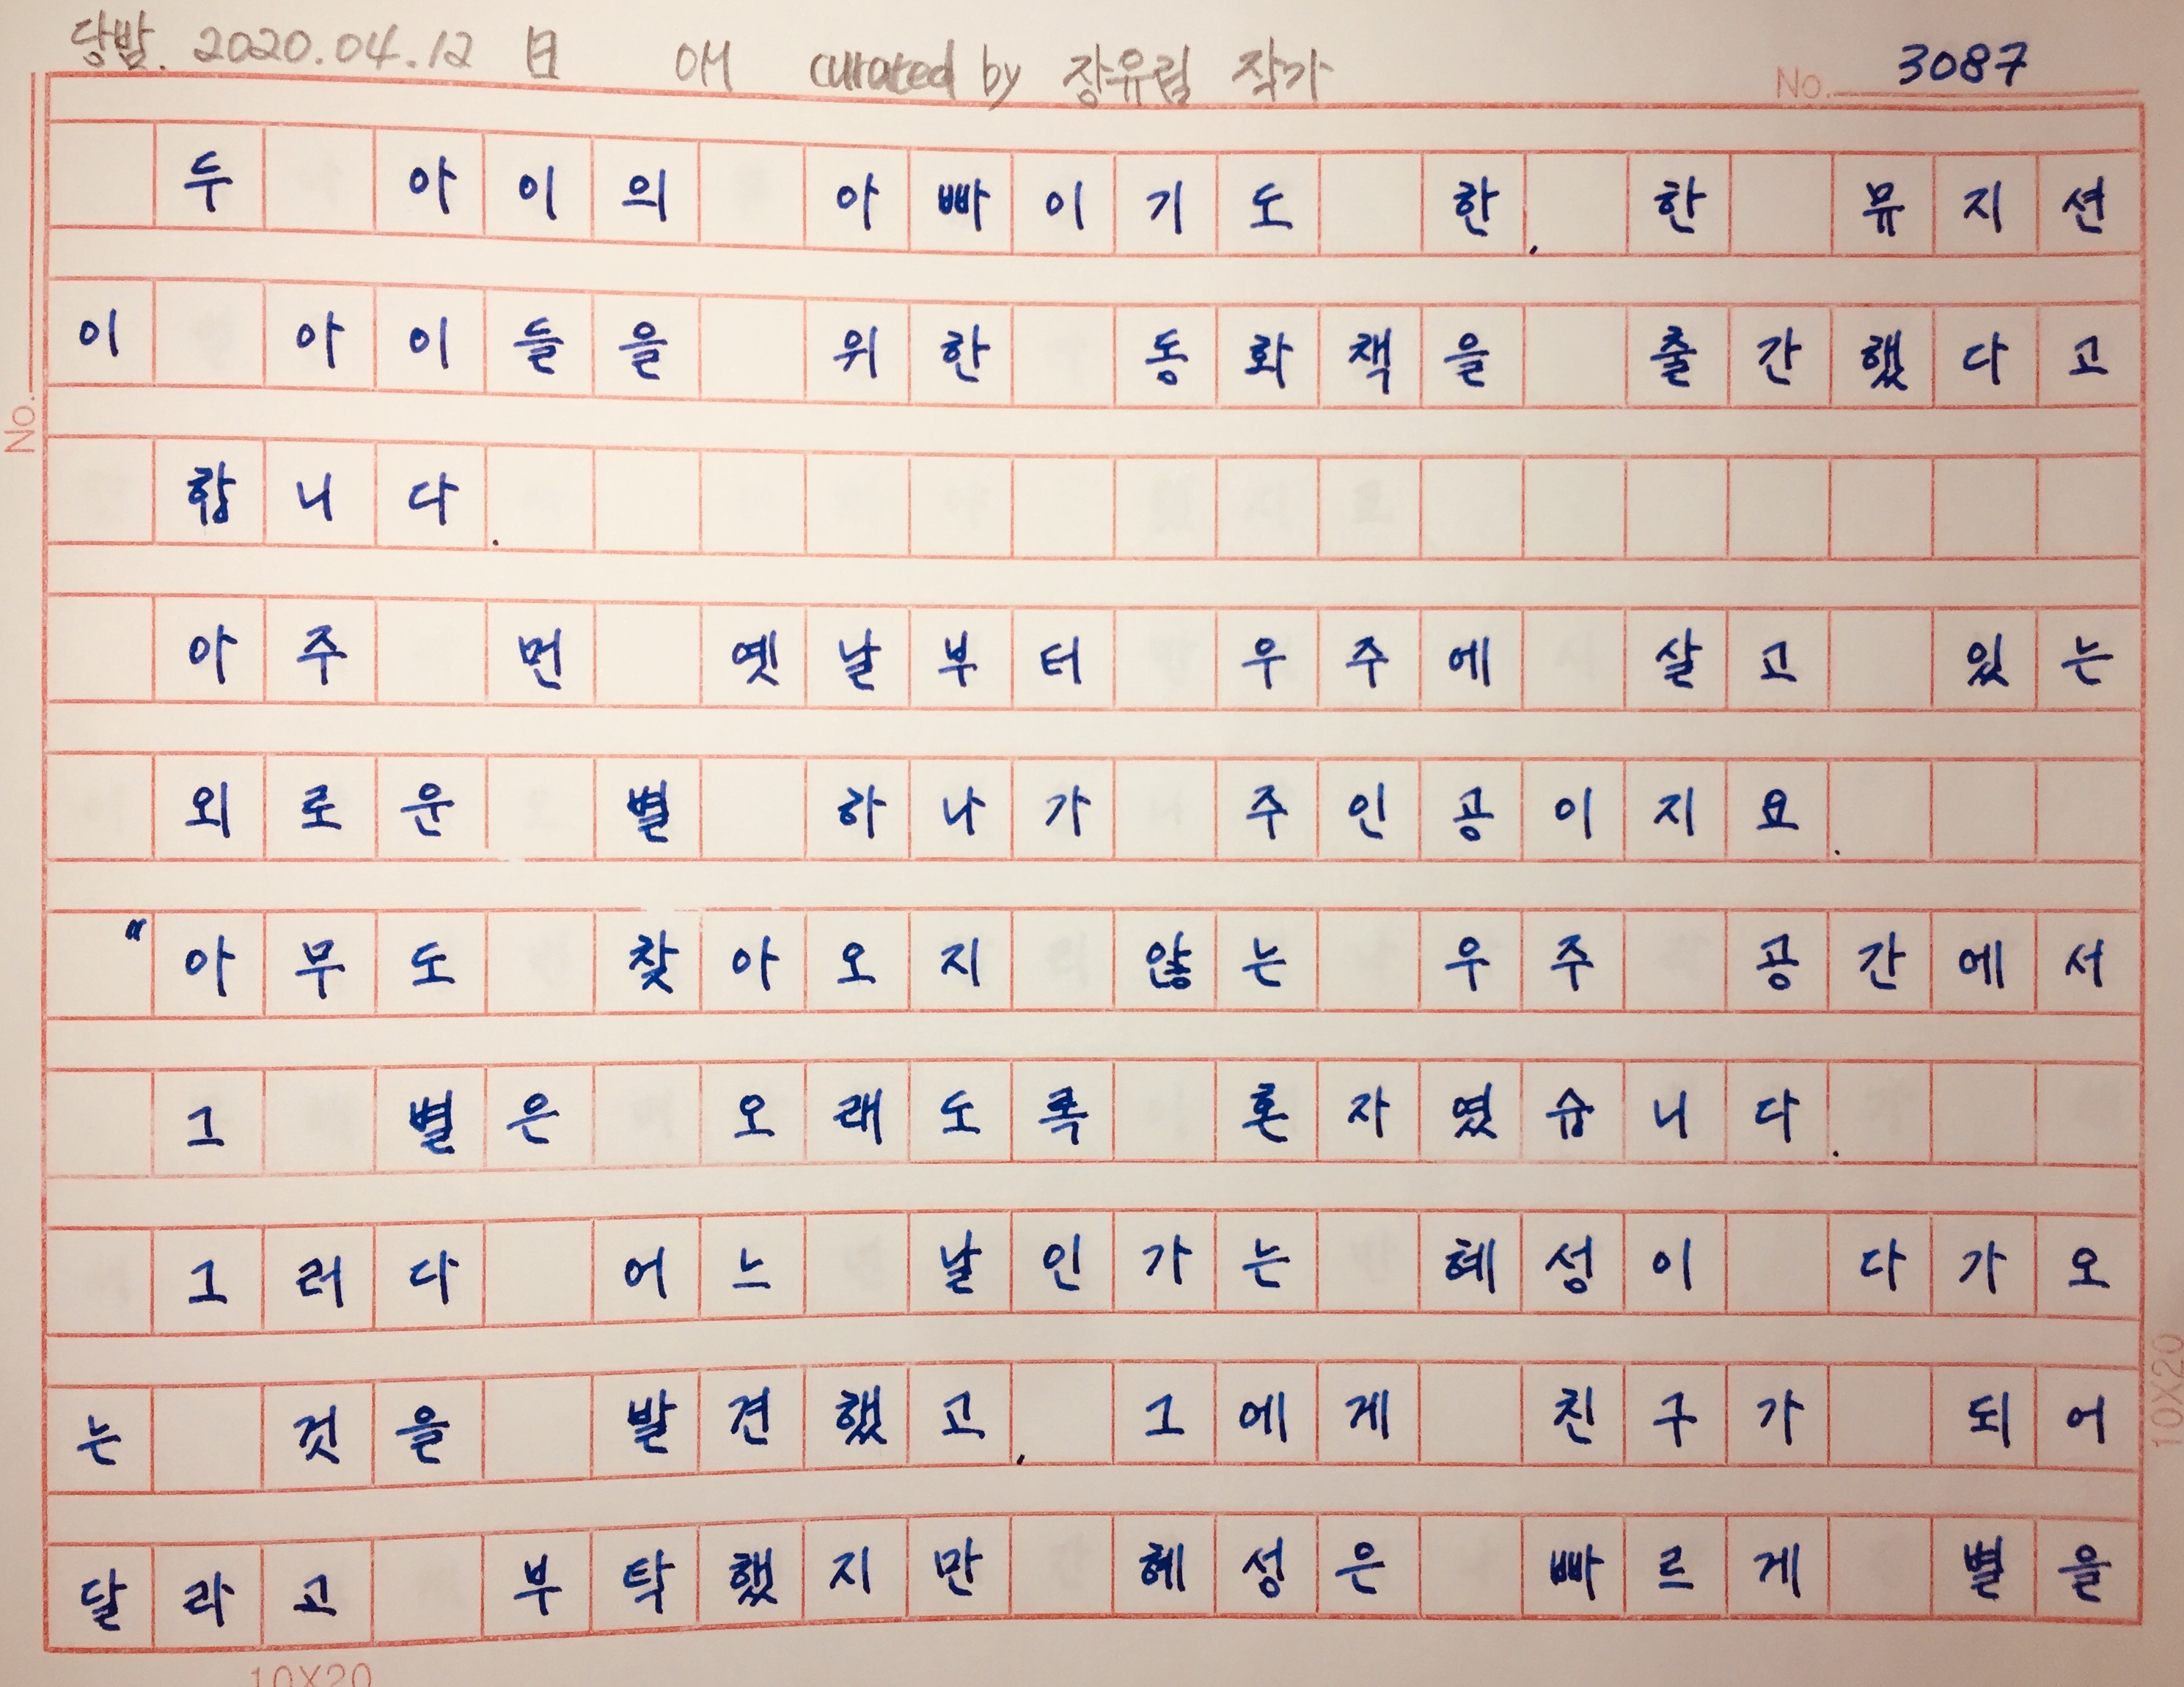 당밤. 2020.04.12 日 애 curated by 장유림 작가
No. 3087
두 아이의 아빠이기도 한, 한 뮤지션
이 아이들을 위한 동화책을 출간했다고
No.
합니다.
아주 먼 옛날부터 우주에 살고 있는
외로운 별 하나가 주인공이지요.
"아무도 찾아오지 않는 우주 공간에서
그 별은 오래도록 혼자였습니다.
그러다 어느 날인가는 혜성이 다가오
는 것을 발견했고, 그에게 친구가 되어
달라고 부탁했지만 혜성은 빠르게 별을
10X20
10X20